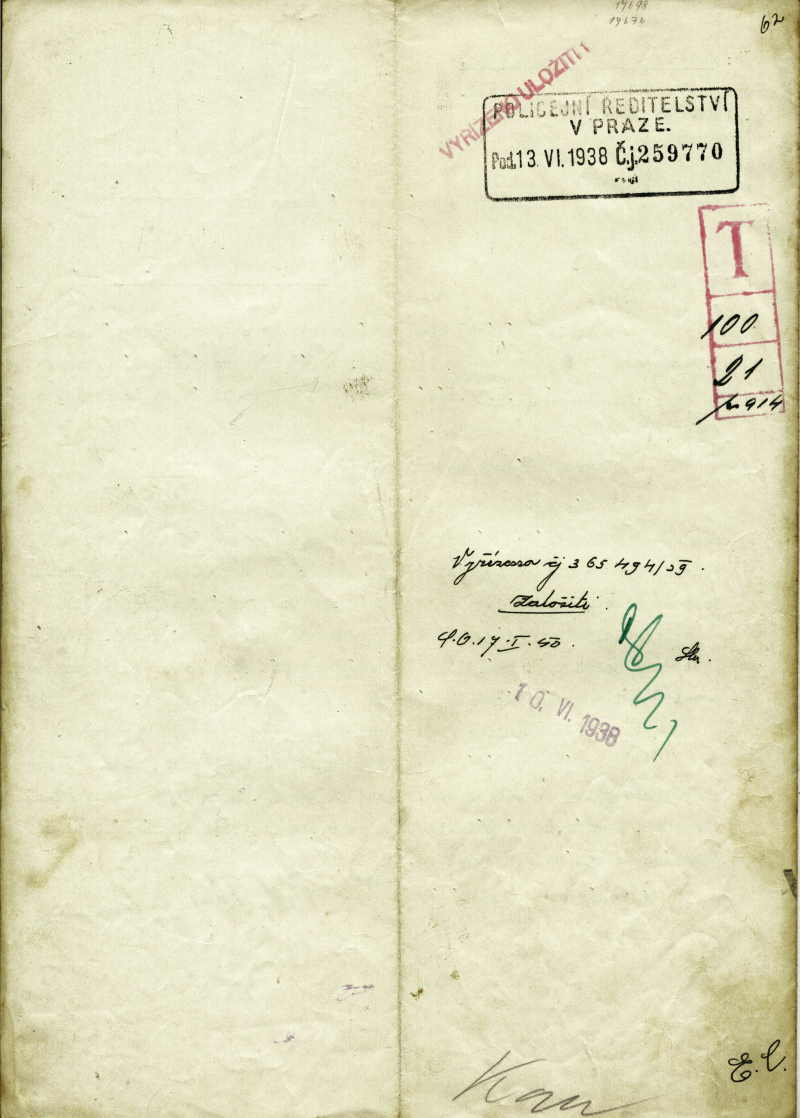 62
VYŘÍZENO ULOŽITI!
POLICEJNÍ ŘEDITELSTVÍ
V PRAZE.
Pod. 13. VI. 1938 Č.j. 259770
T
100
21
914
Vyřízeno čj 365 494/39.
Založiti.
17.I.40.
10. VI. 1938